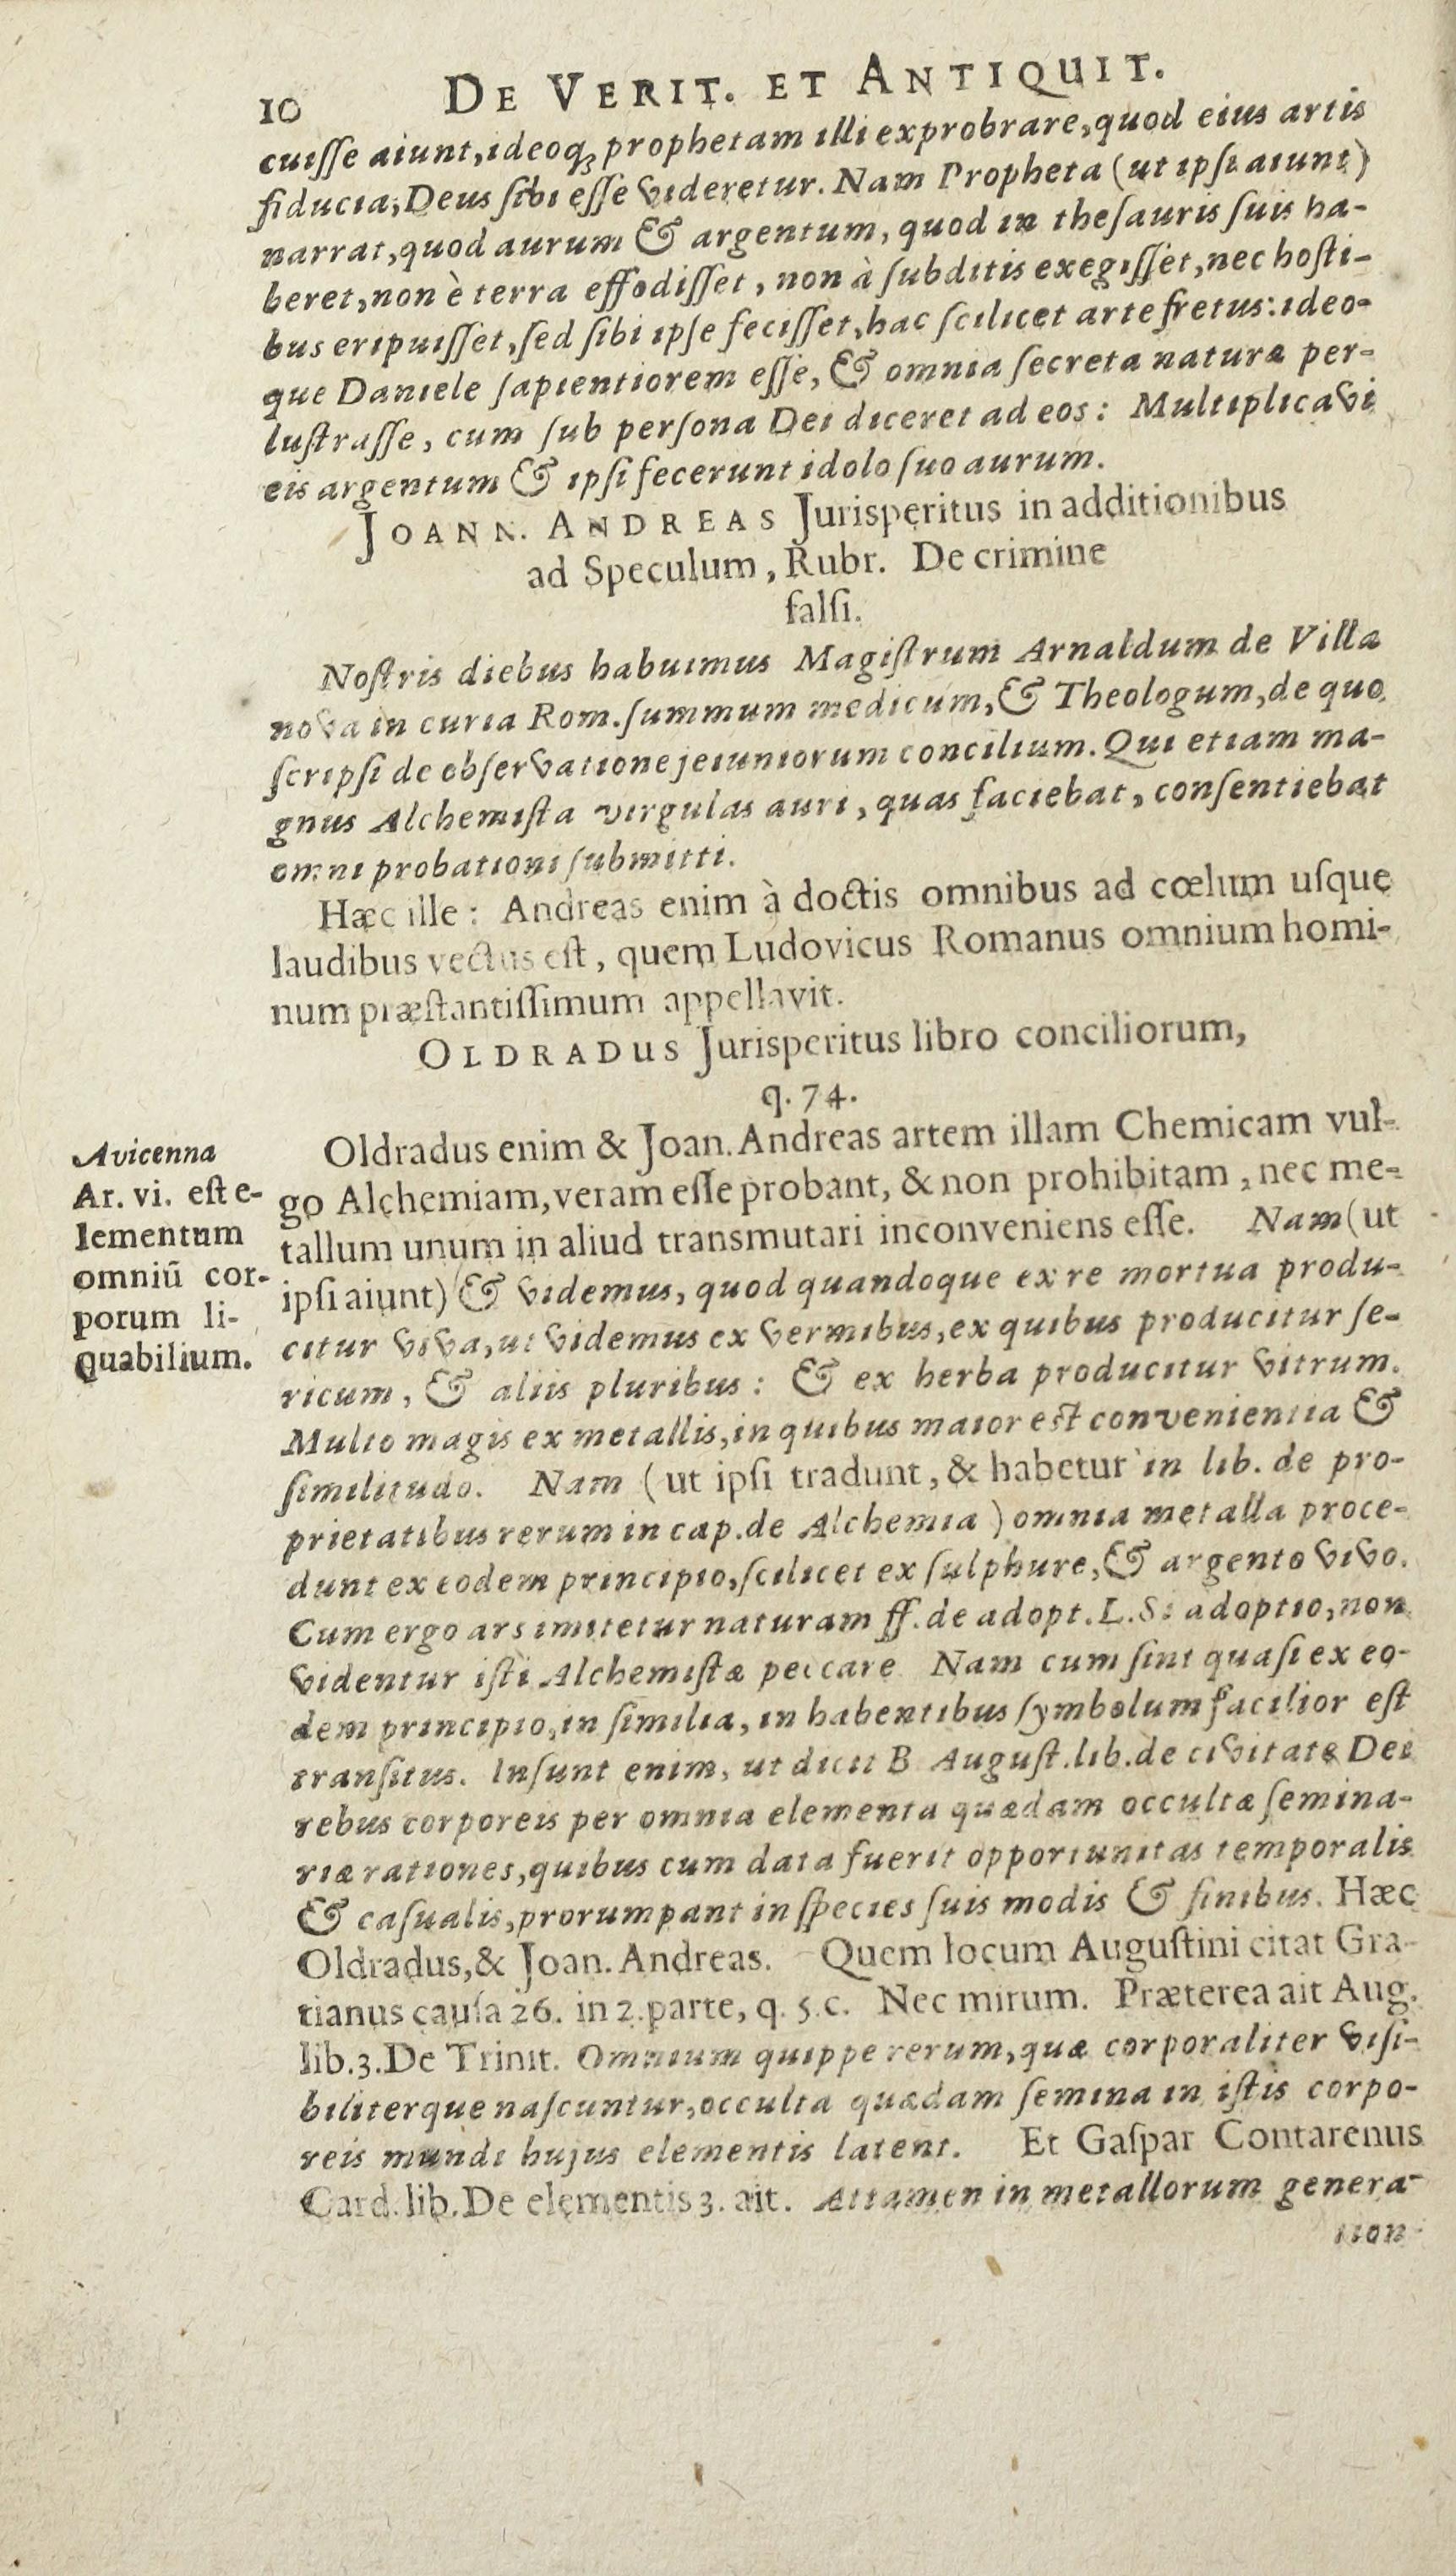 10 DE VERIT. ET ANTIQUIT.
cuiſſe aiunt, ideoqꝫ prophetam illi exprobrare, quod eius artis
fiducia, Deus ſibi eſſe videretur. Nam Propheta (ut ipſi aiunt)
narrat, quod aurum & argentum, quod in theſauris ſuis ha-
beret, non è terra effodiſſet, non à ſubditis exegiſſet, nec hoſti-
bus eripuiſſet, ſed ſibi ipſe feciſſet, hac ſcilicet arte fretus: ideo-
que Daniele ſapientiorem eſſe, & omnia ſecreta naturæ per-
luſtraſſe, cum ſub perſona Dei diceret ad eos: Multiplicavi
eis argentum & ipſi fecerunt idolo ſuo aurum.
JOANN. ANDREAS Jurisperitus in additionibus
ad Speculum, Rubr. De crimine
falſi.
Noſtris diebus habuimus Magiſtrum Arnaldum de Villa
nova in curia Rom. ſummum medicum, & Theologum, de quo
ſcripſi de obſervatione jeiuniorum concilium. Qui etiam ma-
gnus Alchemiſta virgulas auri, quas faciebat, conſentiebat
omni probationi ſubmitti.
Hæc ille: Andreas enim à doctis omnibus ad cœlum uſque
laudibus vectus eſt, quem Ludovicus Romanus omnium homi-
num præſtantiſſimum appellavit.
OLDRADUS Jurisperitus libro conciliorum,
q. 74.
Oldradus enim & Joan. Andreas artem illam Chemicam vul-
go Alchemiam, veram eſſe probant, & non prohibitam, nec me-
tallum unum in aliud transmutari inconveniens eſſe. Nam (ut
ipſi aiunt) & videmus, quod quandoque ex re mortua produ-
citur viva, ut videmus ex vermibus, ex quibus producitur ſe-
ricum, & aliis pluribus: & ex herba producitur vitrum.
Multo magis ex metallis, in quibus maior eſt convenientia &
ſimilitudo. Nam (ut ipſi tradunt, & habetur in lib. de pro-
prietatibus rerum in cap. de Alchemia) omnia metalla proce-
dunt ex eodem principio, ſcilicet ex ſulphure, & argento vivo.
Cum ergo ars imitetur naturam ff. de adopt. L. S: adoptio, non
videntur iſti Alchemiſtæ peccare Nam cum ſint quaſi ex eo-
dem principio, in ſimilia, in habentibus ſymbolum facilior eſt
tranſitus. Inſunt enim, ut dicit B Auguſt. lib. de civitate Dei
rebus corporeis per omnia elementa quædam occultæ ſemina-
riæ rationes, quibus cum data fuerit opportunitas temporalis
& caſualis, prorumpant in ſpecies ſuis modis & finibus. Hæc
Oldradus, & Joan. Andreas. Quem locum Auguſtini citat Gra-
tianus cauſa 26. in 2. parte, q. 5. c. Nec mirum. Præterea ait Aug.
lib. 3. De Trinit. Omnium quippe rerum, quæ corporaliter viſi-
biliterque naſcuntur, occulta quædam ſemina in iſtis corpo-
reis mundi hujus elementis latent. Et Gaſpar Contarenus
Card. lib. De elementis 3. ait. Attamen in metallorum genera-
tion-
Avicenna
Ar. vi. eſt e-
lementum
omniũ cor-
porum li-
quabilium.